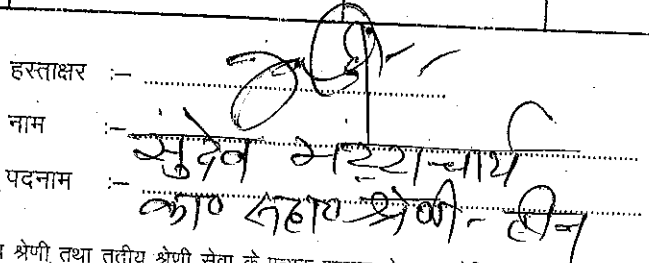 हस्ताक्षर :-
नाम :- सुदेव भट्टाचार्य
पदनाम :- का० सहा० श्रेणी - तीन
श्रेणी तथा तृतीय श्रेणी सेवा के